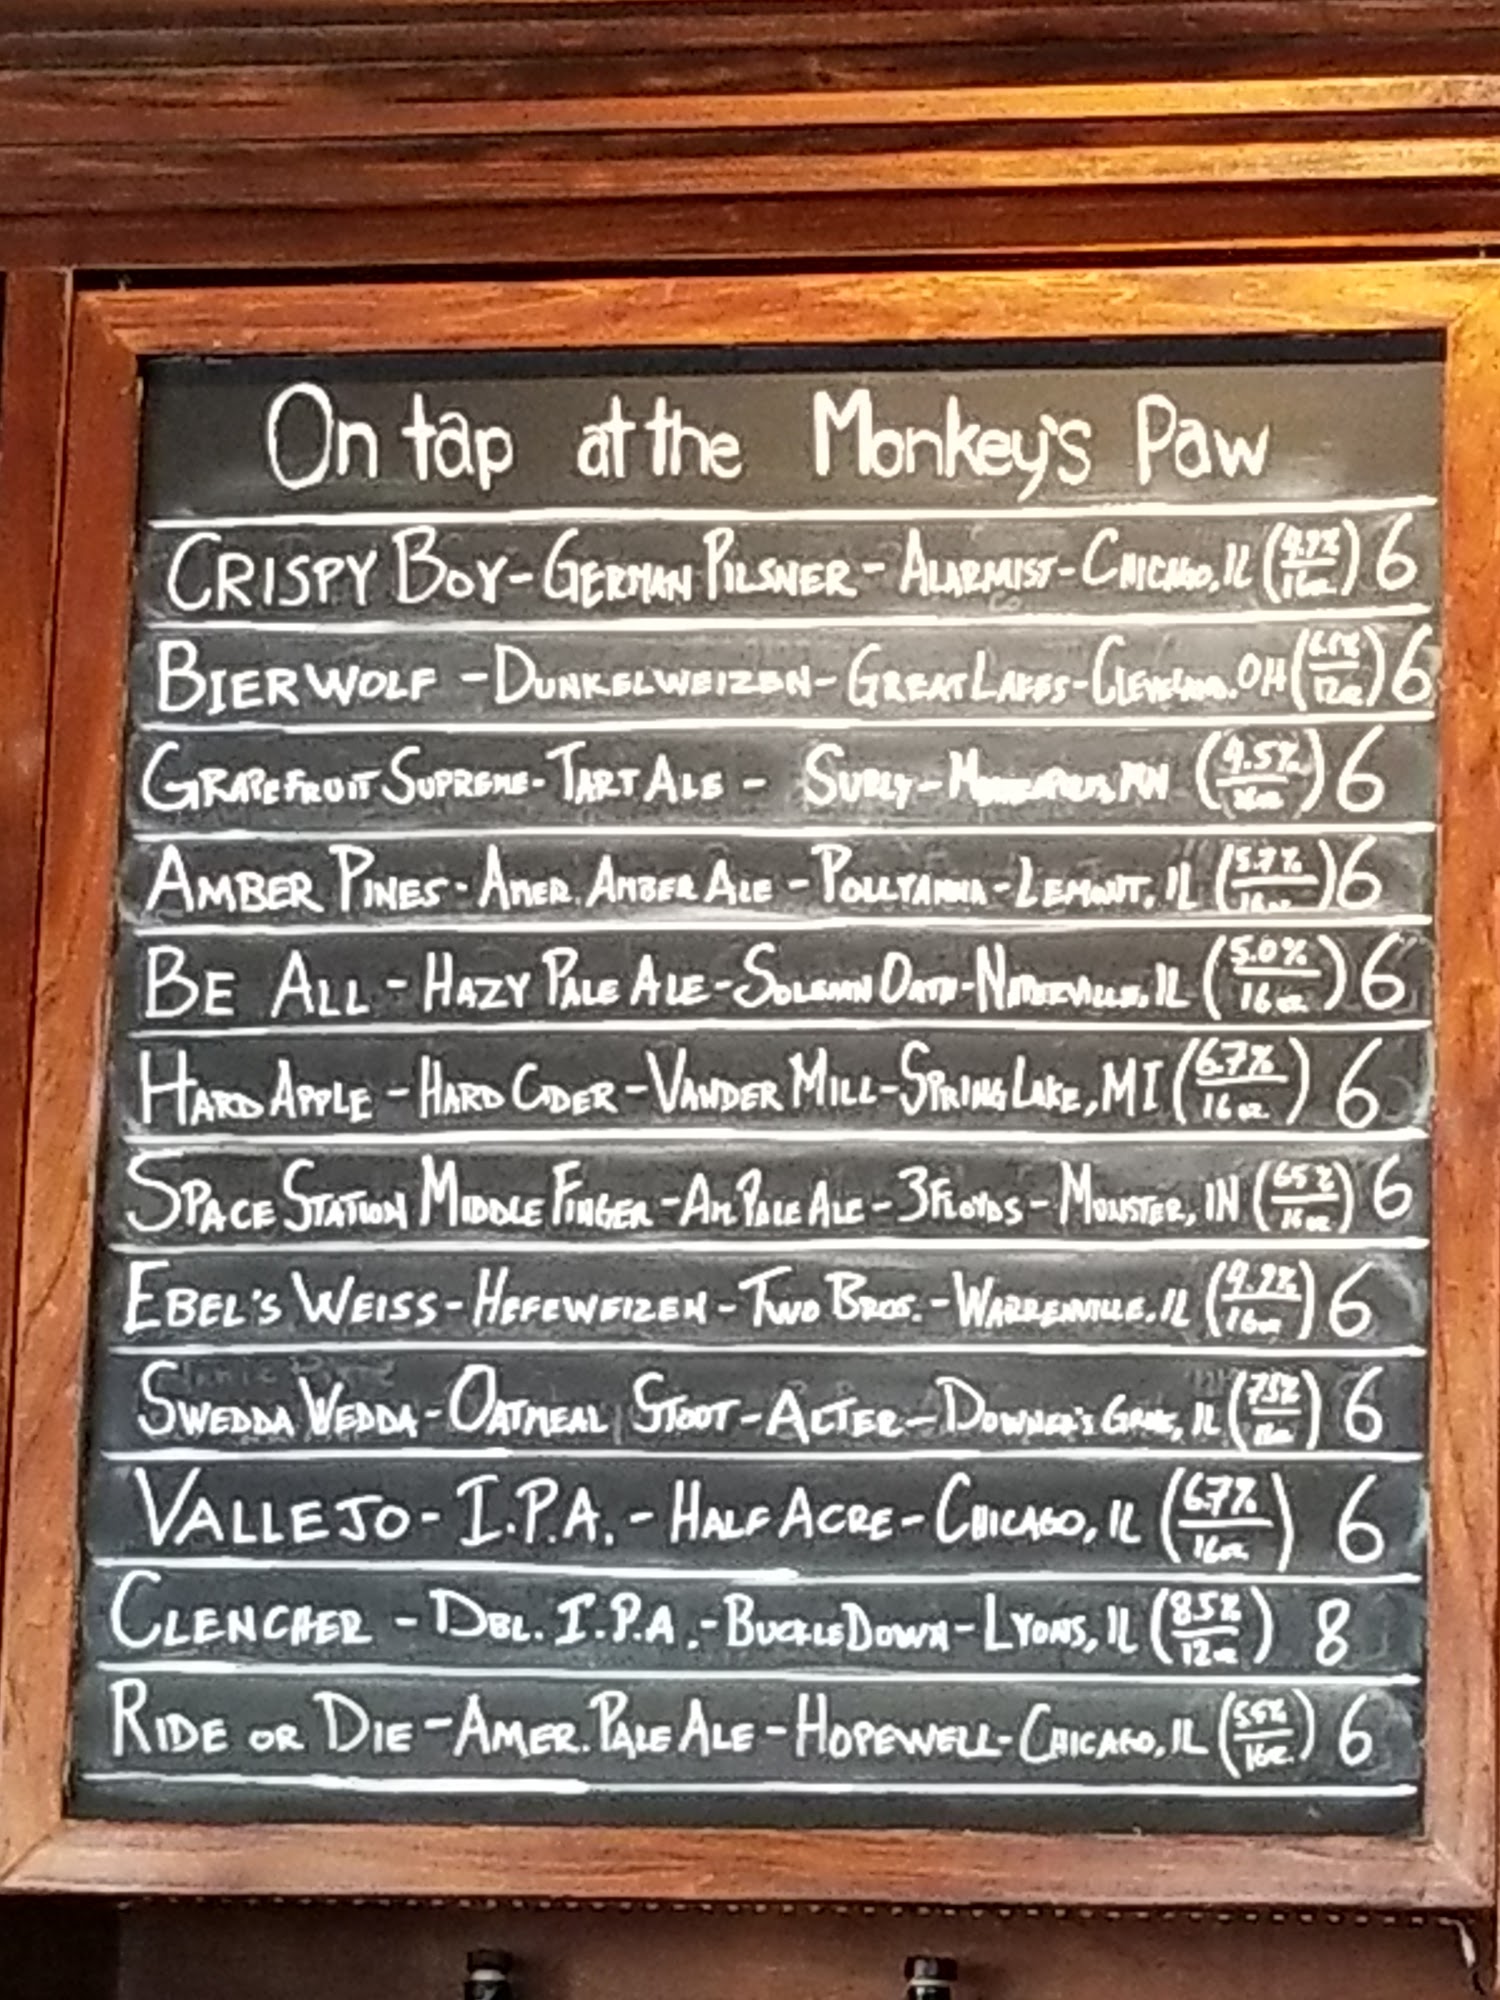 On tap at the Monkey's Paw
CRISPY BOY - GERMAN PILSNER - ALARMIST - CHICAGO, IL (4.9% 16oz) 6
BIERWOLF - DUNKELWEIZEN - GREAT LAKES - CLEVELAND, OH (12oz) 6
GRAPEFRUIT SUPREME - TART ALE - SURLY - MINNEAPOLIS, MN (4.5% 16oz) 6
AMBER PINES - AMER. AMBER ALE - POLLYANNA - LEMONT, IL (5.7% 16oz) 6
BE ALL - HAZY PALE ALE - SOLEMN OATH - NAPERVILLE, IL (5.0% 16oz) 6
HARD APPLE - HARD CIDER - VANDER MILL - SPRING LAKE, MI (6.7% 16oz) 6
SPACE STATION MIDDLE FINGER - AM. PALE ALE - 3 FLOYDS - MUNSTER, IN (6.5% 16oz) 6
EBEL'S WEISS - HEFEWEIZEN - TWO BROS. - WARRENVILLE, IL (4.9% 16oz) 6
SWEDDA WEDDA - OATMEAL STOUT - ALTER - DOWNER'S GROVE, IL (7.5%) 6
VALLEJO - I.P.A. - HALF ACRE - CHICAGO, IL (6.7% 16oz) 6
CLENCHER - DBL. I.P.A. - BUCKLEDOWN - LYONS, IL (8.5% 12oz) 8
RIDE OR DIE - AMER. PALE ALE - HOPEWELL - CHICAGO, IL (5.5% 16oz) 6